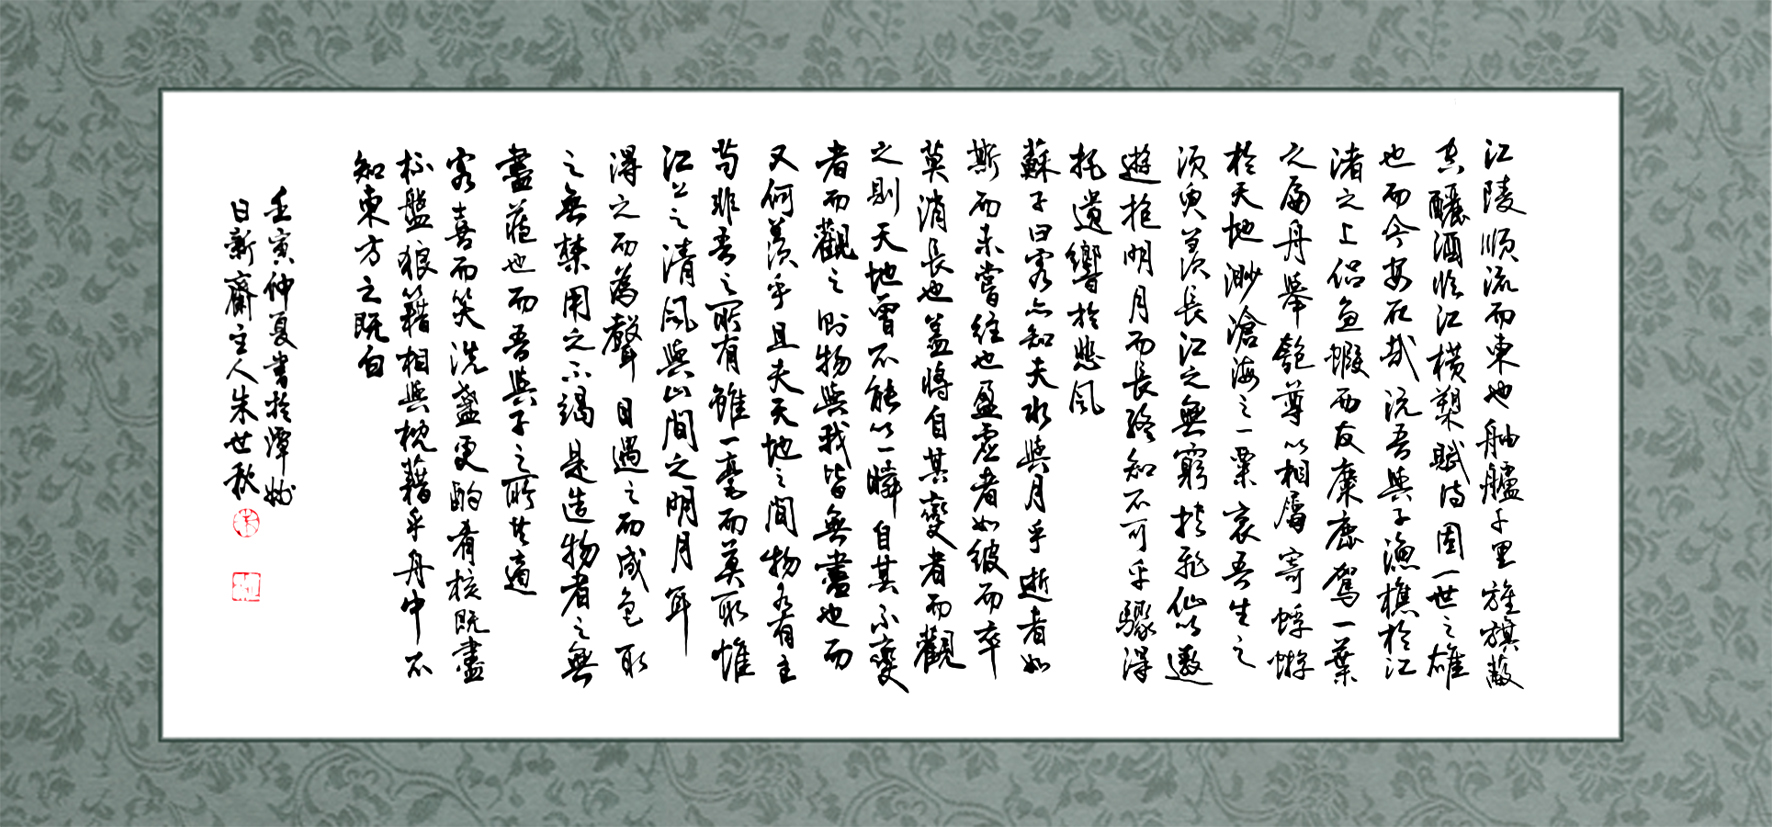 江陵順流而東也舳艫千里旌旗蔽
空釃酒臨江橫槊賦詩固一世之雄
也而今安在哉況吾與子漁樵於江
渚之上侶魚蝦而友麋鹿駕一葉
之扁舟舉匏尊以相屬寄蜉蝣
於天地渺滄海之一粟哀吾生之
須臾羨長江之無窮挾飛仙以遨
遊抱明月而長終知不可乎驟得
托遺響於悲風
蘇子曰客亦知夫水與月乎逝者如
斯而未嘗往也盈虛者如彼而卒
莫消長也蓋將自其變者而觀
之則天地曾不能以一瞬自其不變
者而觀之則物與我皆無盡也而
又何羨乎且夫天地之間物各有主
苟非吾之所有雖一毫而莫取惟
江上之清風與山間之明月耳
得之而為聲目遇之而成色取
之無禁用之不竭是造物者之無
盡藏也而吾與子之所共適
客喜而笑洗盞更酌肴核既盡
杯盤狼籍相與枕藉乎舟中不
知東方之既白
壬寅仲夏書於潭州
日新齋主人朱世秋